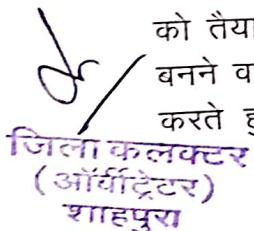 को तैया
बनने व
करते ह
जिला कलक्टर
(ऑर्वीट्रेटर)
शाहपुरा